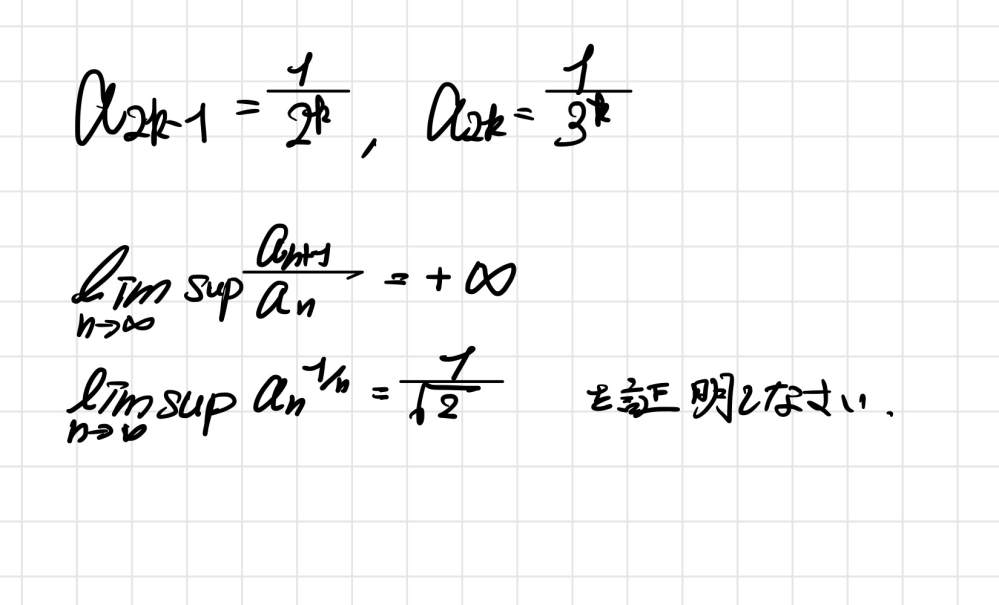 a_{2k-1} = \frac{1}{2^k}, a_{2k} = \frac{1}{3^k}
\limsup_{n→∞} \frac{a_{n+1}}{a_n} = +∞
\limsup_{n→∞} a_n^{1/n} = \frac{1}{\sqrt{2}} を証明しなさい.